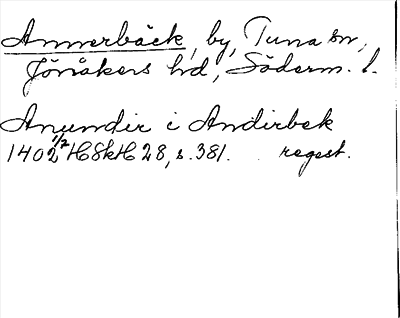 Ammerbäck, by, Tuna sn,
Jönåkers hd, Söderm. l.
Anundir i Andirbek
1402 1/2 HSkH 28, s. 381. regest.